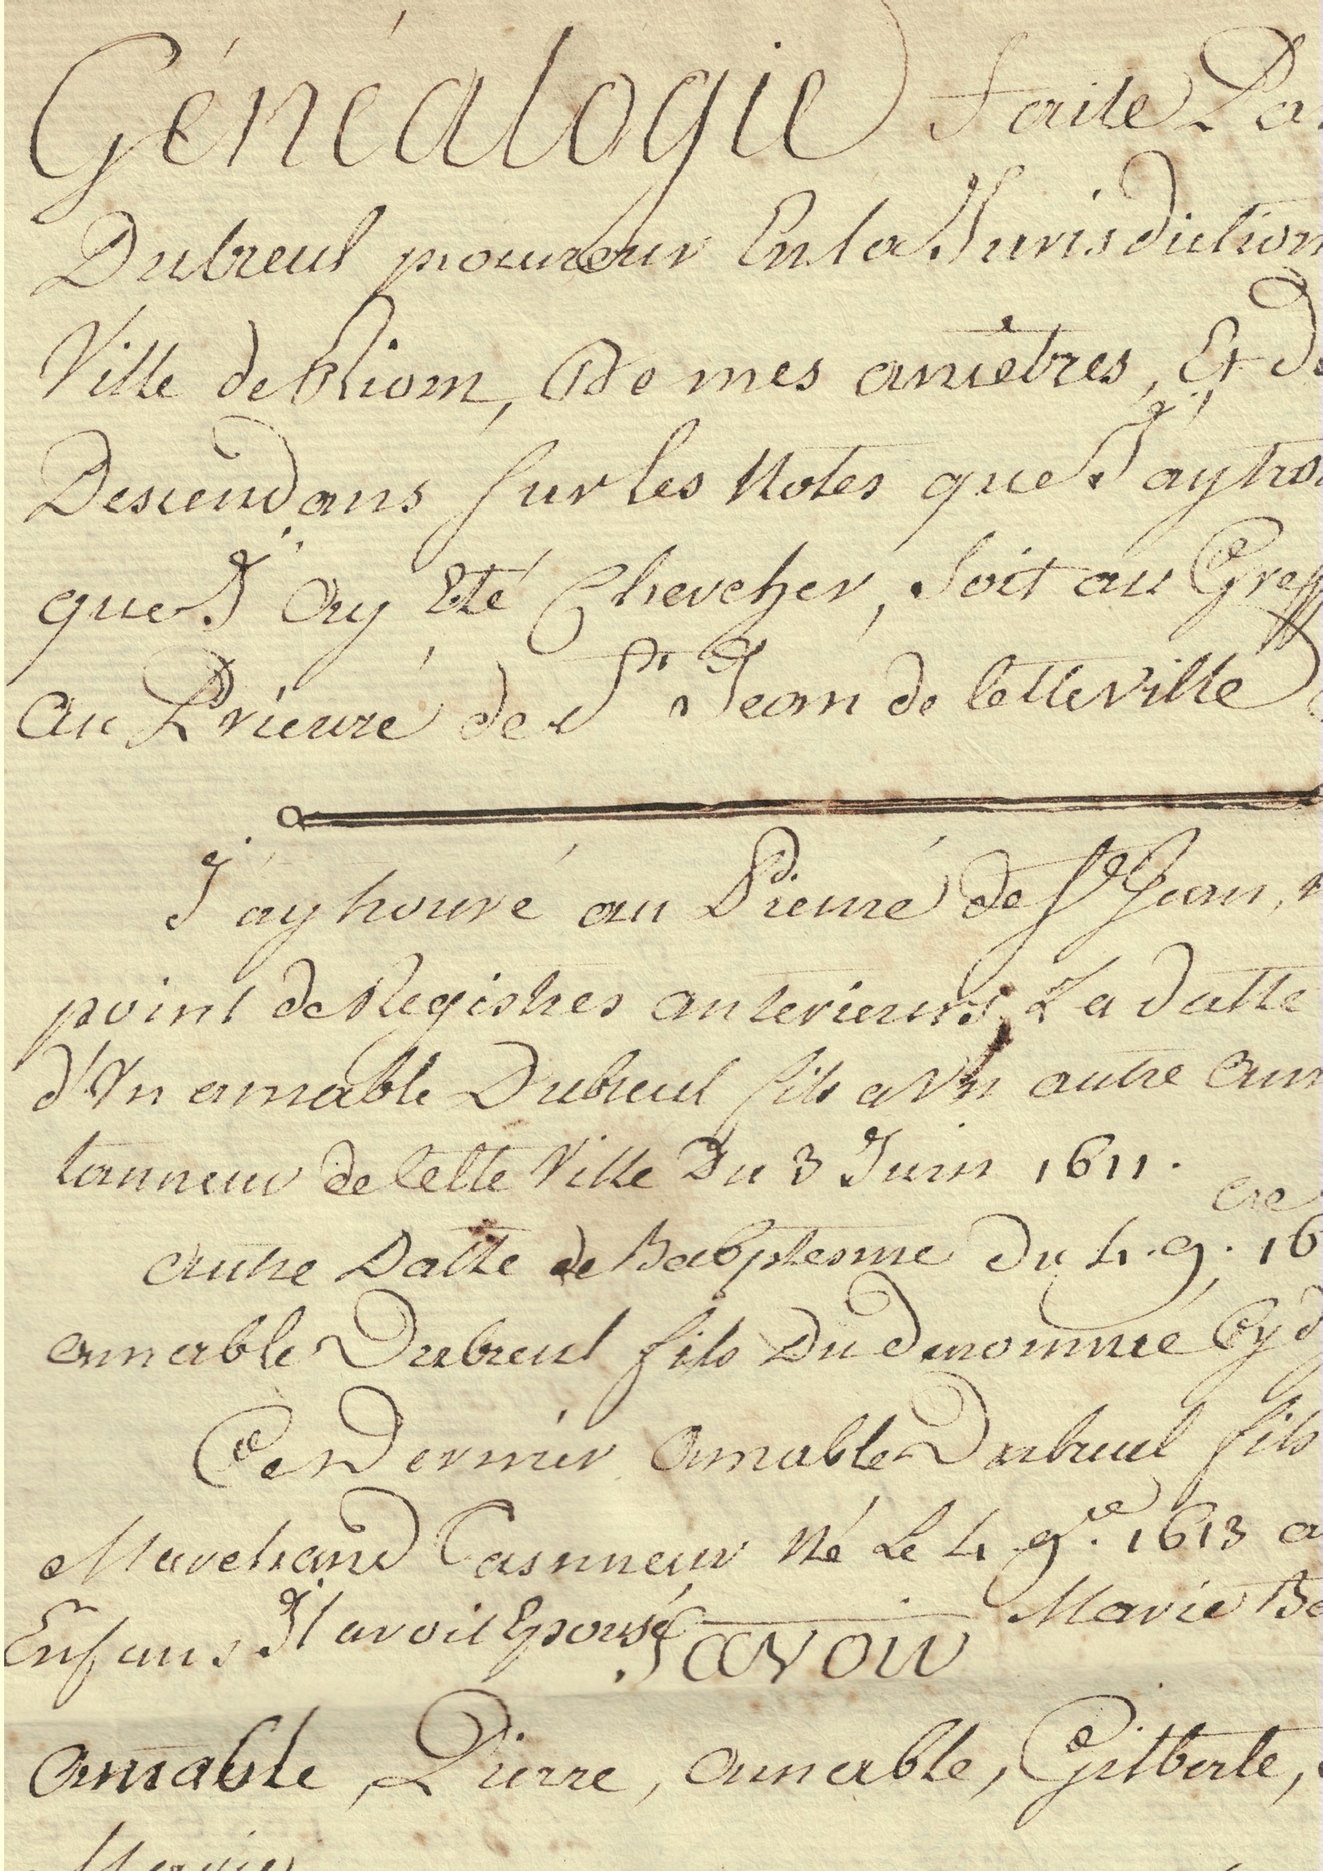 Généalogie faite Pa
Dubreul procureur En la Jurisdiction
Ville de Riom, De mes ancêtres, Et De
Descendans sur les Notes que J'ay tro
que J'ay Eté Chercher, soit au Greff
au Prieuré de St Jean de Cette Ville
J'ay trouvé au Prieuré de St Jean, n
point de Registres anterieurs, La datte
d'Un amable Dubreul fils a Un autre am
tanneur de Cette Ville Du 3 Juin 1611.
autre Datte de Babptesme du 4. 9.bre 16
amable Dubreul fils Du denommé Cy d
Ce Dernier amable Dubreul fils
Marchand Tasnneur Né Le 4 9.re 1613 a
Enfans Il avoit Epousé Marie Be
Savoir
amable, Pierre, amable, Gilberte,
Marie